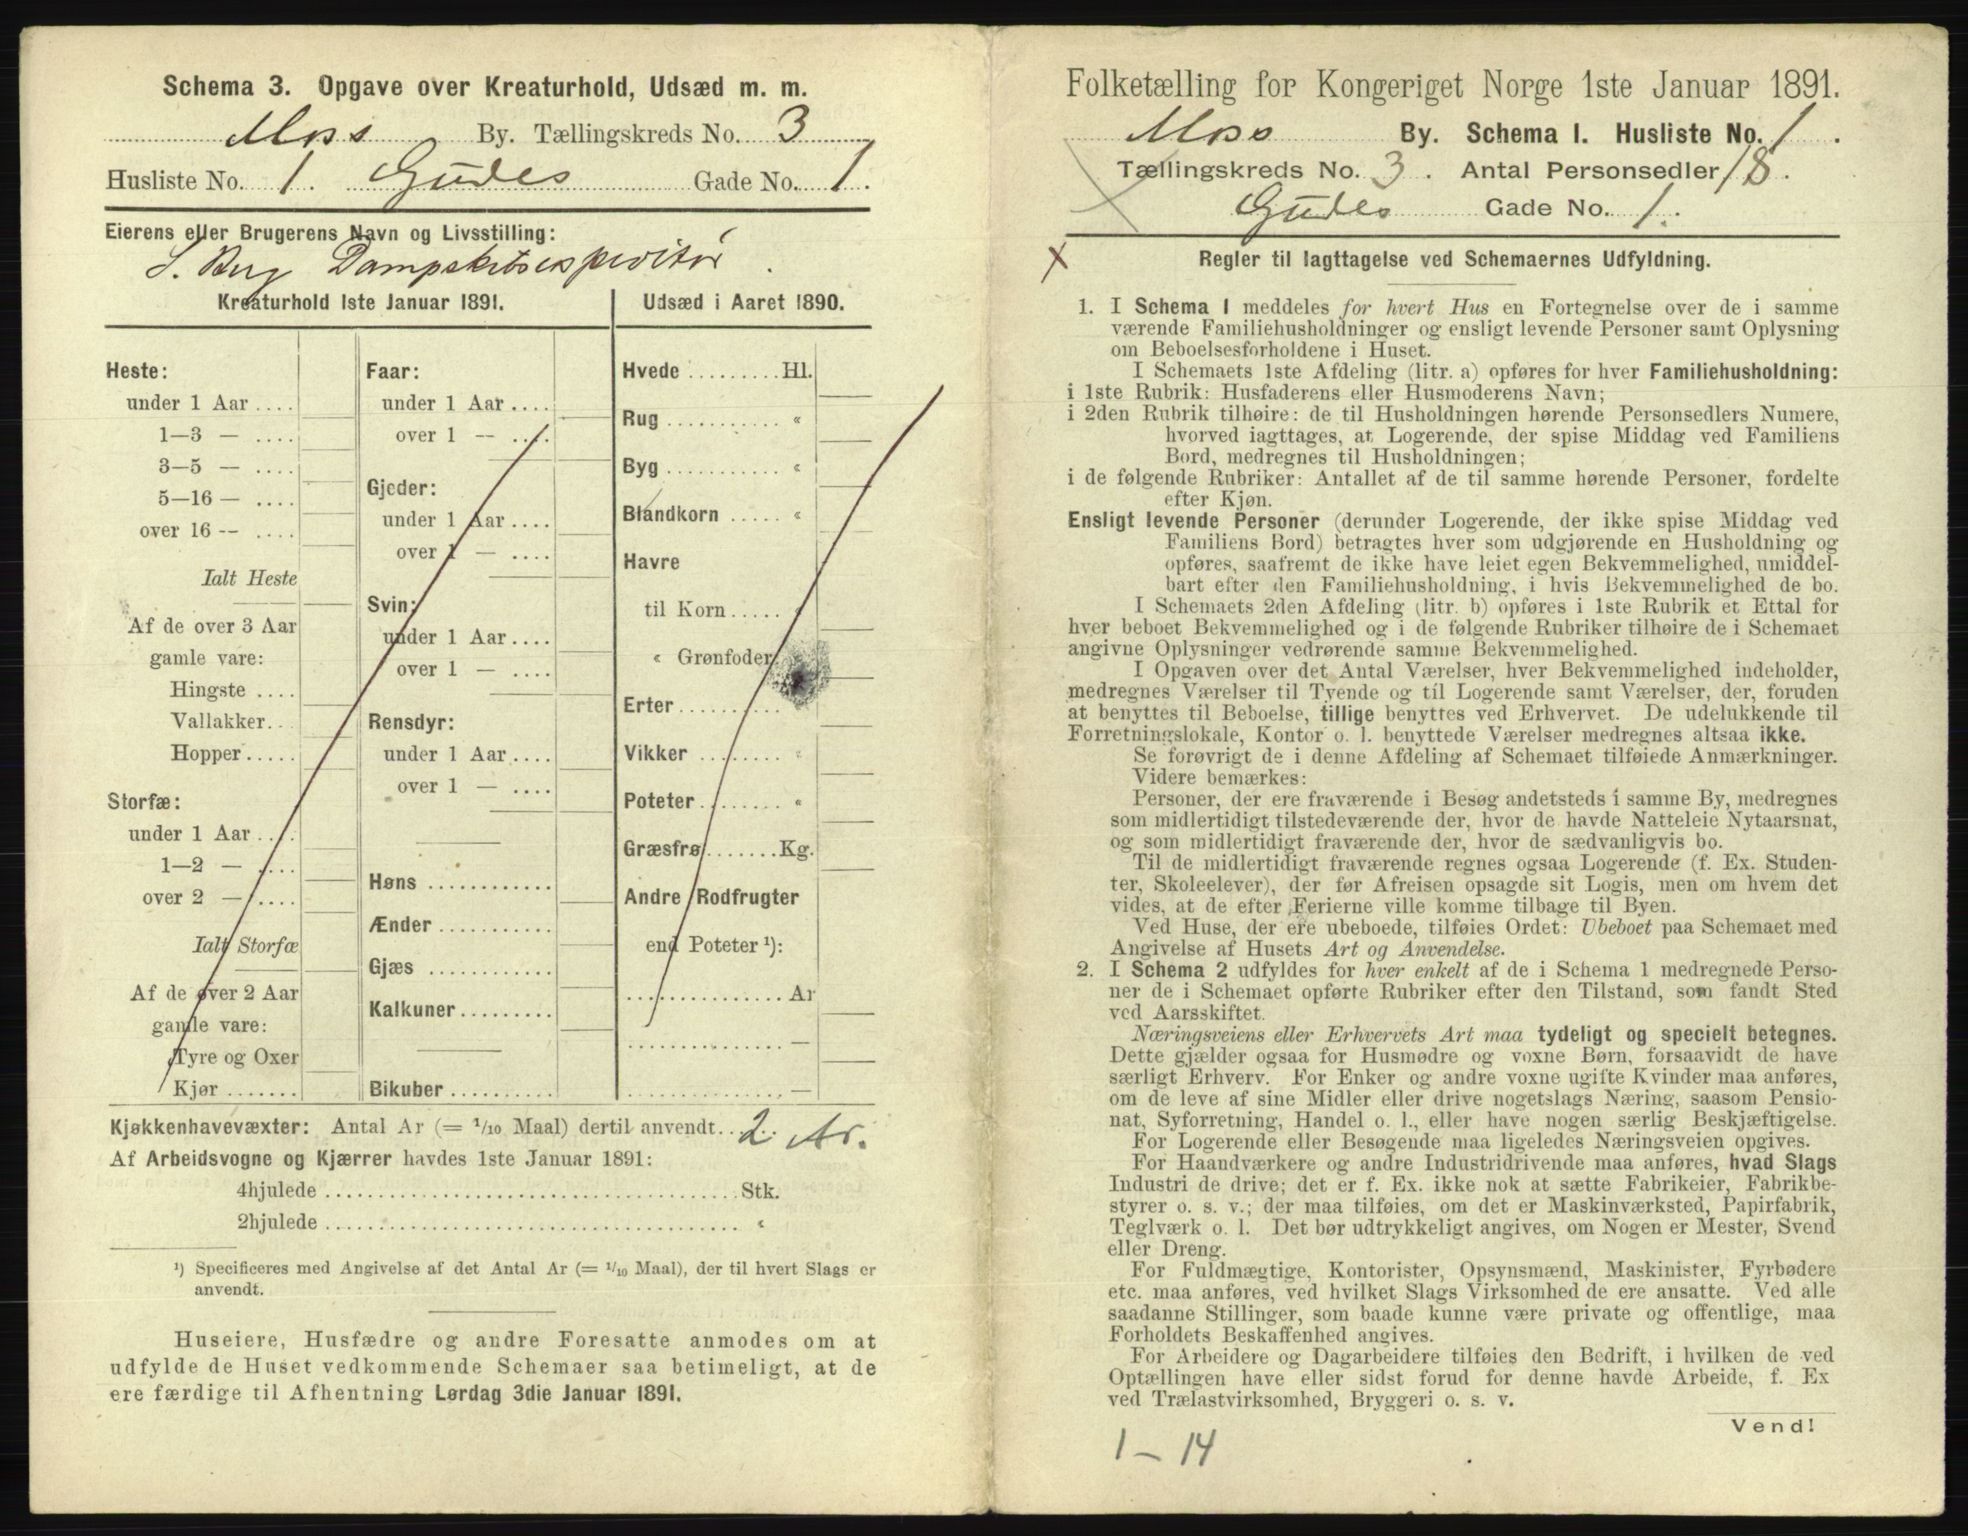 Schema 3. Opgave over Kreaturhold, Udsæd m. m.
Moss By. Tællingskreds No. 3
Husliste No. 1. Gudes Gade No. 1.
Eierens eller Brugerens Navn og Livsstilling:
S. Berg Dampskibsexpeditør.
Kreaturhold 1ste Januar 1891. Udsæd i Aaret 1890.
Heste:
under 1 Aar ....
1—3 — ....
3—5 — ....
5—16 — ....
over 16 -- ....
Ialt Heste
Af de over 3 Aar
gamle vare:
Hingste ....
Vallakker...
Hopper.....
Storfæ:
under 1 Aar ....
1—2 — ....
over 2 — ....
Ialt Storfæ
Af de over 2 Aar
gamle vare:
Tyre og Oxer
Kjør .......
Faar:
under 1 Aar ....
over 1 -- ....
Gjeder:
under 1 Aar ....
over 1 — ....
Svin:
under 1 Aar ....
over 1 — ....
Rensdyr:
under 1 Aar ....
over 1 — ....
Høns ............
Ænder ...........
Gjæs ............
Kalkuner.........
Bikuber ..........
Hvede ......... Hl.
Rug ........... «
Byg ........... «
Blandkorn ..... «
Havre
til Korn ..... «
« Grønfoder.
Erter ......... «
Vikker ........ «
Poteter ....... «
Græsfrø ....... Kg.
Andre Rodfrugter
end Poteter ¹):
............... Ar
............... —
............... —
Kjøkkenhavevæxter: Antal Ar (= 1/10 Maal) dertil anvendt.. 2 Ar.
Af Arbeidsvogne og Kjærrer havdes 1ste Januar 1891:
4hjulede ........................................ Stk.
2hjulede ........................................ «
¹) Specificeres med Angivelse af det Antal Ar (= 1/10 Maal), der til hvert Slags er
anvendt.
Huseiere, Husfædre og andre Foresatte anmodes om at
udfylde de Huset vedkommende Schemaer saa betimeligt, at de
ere færdige til Afhentning Lørdag 3die Januar 1891.
Folketælling for Kongeriget Norge 1ste Januar 1891.
Moss By. Schema I. Husliste No. 1.
Tællingskreds No. 3. Antal Personsedler 18.
Gudes Gade No. 1.
Regler til Iagttagelse ved Schemaernes Udfyldning.
1. I Schema I meddeles for hvert Hus en Fortegnelse over de i samme
værende Familiehusholdninger og ensligt levende Personer samt Oplysning
om Beboelsesforholdene i Huset.
I Schemaets 1ste Afdeling (litr. a) opføres for hver Familiehusholdning:
i 1ste Rubrik: Husfaderens eller Husmoderens Navn;
i 2den Rubrik tilhøire: de til Husholdningen hørende Personsedlers Numere,
hvorved iagttages, at Logerende, der spise Middag ved Familiens
Bord, medregnes til Husholdningen;
i de følgende Rubriker: Antallet af de til samme hørende Personer, fordelte
efter Kjøn.
Ensligt levende Personer (derunder Logerende, der ikke spise Middag ved
Familiens Bord) betragtes hver som udgjørende en Husholdning og
opføres, saafremt de ikke have leiet egen Bekvemmelighed, umiddel-
bart efter den Familiehusholdning, i hvis Bekvemmelighed de bo.
I Schemaets 2den Afdeling (litr. b) opføres i 1ste Rubrik et Ettal for
hver beboet Bekvemmelighed og i de følgende Rubriker tilhøire de i Schemaet
angivne Oplysninger vedrørende samme Bekvemmelighed.
I Opgaven over det Antal Værelser, hver Bekvemmelighed indeholder,
medregnes Værelser til Tyende og til Logerende samt Værelser, der, foruden
at benyttes til Beboelse, tillige benyttes ved Erhvervet. De udelukkende til
Forretningslokale, Kontor o. l. benyttede Værelser medregnes altsaa ikke.
Se forøvrigt de i denne Afdeling af Schemaet tilføiede Anmærkninger.
Videre bemærkes:
Personer, der ere fraværende i Besøg andetsteds i samme By, medregnes
som midlertidigt tilstedeværende der, hvor de havde Natteleie Nytaarsnat,
og som midlertidigt fraværende der, hvor de sædvanligvis bo.
Til de midlertidigt fraværende regnes ogsaa Logerende (f. Ex. Studen-
ter, Skoleelever), der før Afreisen opsagde sit Logis, men om hvem det
vides, at de efter Ferierne ville komme tilbage til Byen.
Ved Huse, der ere ubeboede, tilføies Ordet: Ubeboet paa Schemaet med
Angivelse af Husets Art og Anvendelse.
2. I Schema 2 udfyldes for hver enkelt af de i Schema 1 medregnede Perso-
ner de i Schemaet opførte Rubriker efter den Tilstand, som fandt Sted
ved Aarsskiftet.
Næringsveiens eller Erhvervets Art maa tydeligt og specielt betegnes.
Dette gjælder ogsaa for Husmødre og voxne Børn, forsaavidt de have
særligt Erhverv. For Enker og andre voxne ugifte Kvinder maa anføres,
om de leve af sine Midler eller drive nogetslags Næring, saasom Pensio-
nat, Syforretning, Handel o. l., eller have nogen særlig Beskjæftigelse.
For Logerende eller Besøgende maa ligeledes Næringsveien opgives.
For Haandværkere og andre Industridrivende maa anføres, hvad Slags
Industri de drive; det er f. Ex. ikke nok at sætte Fabrikeier, Fabrikbe-
styrer o. s. v.; der maa tilføies, om det er Maskinværksted, Papirfabrik,
Teglværk o. l. Det bør udtrykkeligt angives, om Nogen er Mester, Svend
eller Dreng.
For Fuldmægtige, Kontorister, Opsynsmænd, Maskinister, Fyrbødere
etc. maa anføres, ved hvilket Slags Virksomhed de ere ansatte. Ved alle
saadanne Stillinger, som baade kunne være private og offentlige, maa
Forholdets Beskaffenhed angives.
For Arbeidere og Dagarbeidere tilføies den Bedrift, i hvilken de ved
Optællingen have eller sidst forud for denne havde Arbeide, f. Ex
ved Trælastvirksomhed, Bryggeri o. s. v.
Vend!
1 — 14